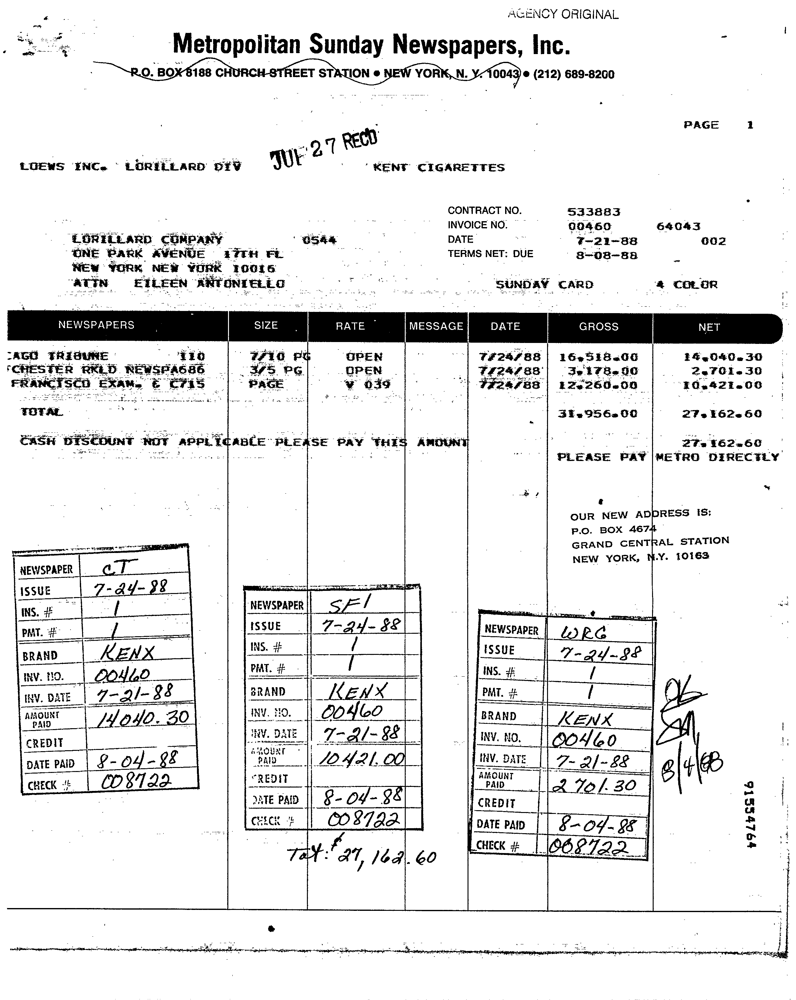 AGENCY ORIGINAL
Metropolitan Sunday Newspapers, Inc.
P.O. BOX 8188 CHURCH STREET STATION • NEW YORK, N. Y. 10043 • (212) 689-8200
PAGE 1
JUL 27 REC'D
LOEWS INC. LORILLARD DIV KENT CIGARETTES
CONTRACT NO. 533883
INVOICE NO. 00460 64043
LORILLARD COMPANY 0544 DATE 7-21-88 002
ONE PARK AVENUE 17TH FL TERMS NET: DUE 8-08-88
NEW YORK NEW YORK 10016
ATTN EILEEN ANTONIELLO SUNDAY CARD 4 COLOR
NEWSPAPERS SIZE RATE MESSAGE DATE GROSS NET
CAGO TRIBUNE 110 7/10 PG OPEN 7/24/88 16,518.00 14,040.30
CHESTER RKLD NEWSPA686 3/5 PG OPEN 7/24/88 3,178.00 2,701.30
FRANCISCO EXAM. & C715 PAGE V 039 7/24/88 12,260.00 10,421.00
TOTAL 31,956.00 27,162.60
CASH DISCOUNT NOT APPLICABLE PLEASE PAY THIS AMOUNT 27,162.60
PLEASE PAY METRO DIRECTLY
OUR NEW ADDRESS IS:
P.O. BOX 4674
GRAND CENTRAL STATION
NEW YORK, N.Y. 10163
NEWSPAPER CT
ISSUE 7-24-88
INS. # 1
PMT. # 1
BRAND KENX
INV. NO. 00460
INV. DATE 7-21-88
AMOUNT PAID 14040.30
CREDIT
DATE PAID 8-04-88
CHECK # 008722
NEWSPAPER SFI
ISSUE 7-24-88
INS. # 1
PMT. # 1
BRAND KENX
INV. NO. 00460
INV. DATE 7-21-88
AMOUNT PAID 10421.00
CREDIT
DATE PAID 8-04-88
CHECK # 008722
Tot: $27,162.60
NEWSPAPER WRG
ISSUE 7-24-88
INS. # 1
PMT. # 1
BRAND KENX
INV. NO. 00460
INV. DATE 7-21-88
AMOUNT PAID 2701.30
CREDIT
DATE PAID 8-04-88
CHECK # 008722
OK
8/4/88
91554764